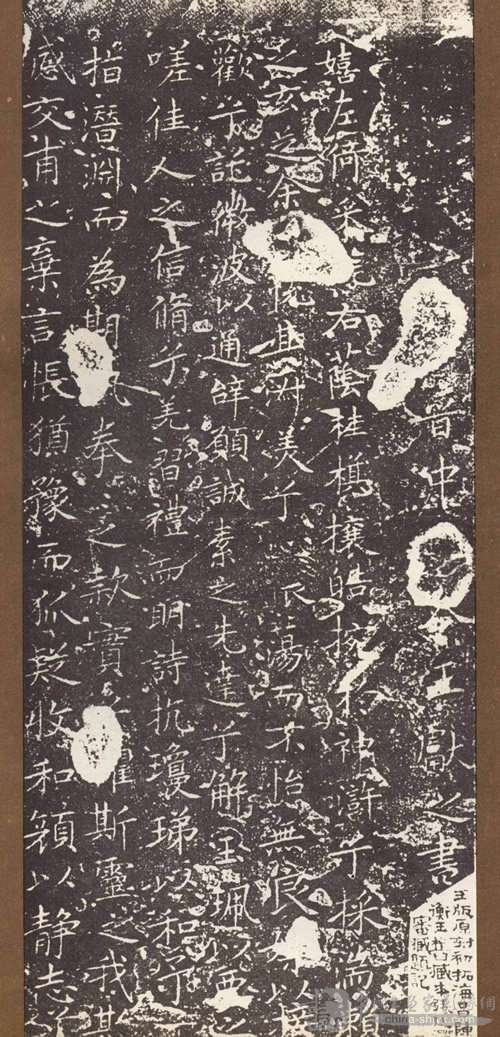 晉中令王獻之書
嬉左倚采旄右蔭桂旗攘皓捥於神滸兮採湍瀨
之玄芝余悅其淑美兮振蕩而不怡無良以接
歡兮託微波以通辭願誠素之先達兮解玉珮以要之
嗟佳人之信脩兮羌習禮而明詩抗瓊珶以和予
指潛淵而為期執拳之款實懼斯靈之我
感交甫之棄言悵猶豫而狐疑收和顏以静志
玉版原刻初拓海
衡王舊藏本
題記